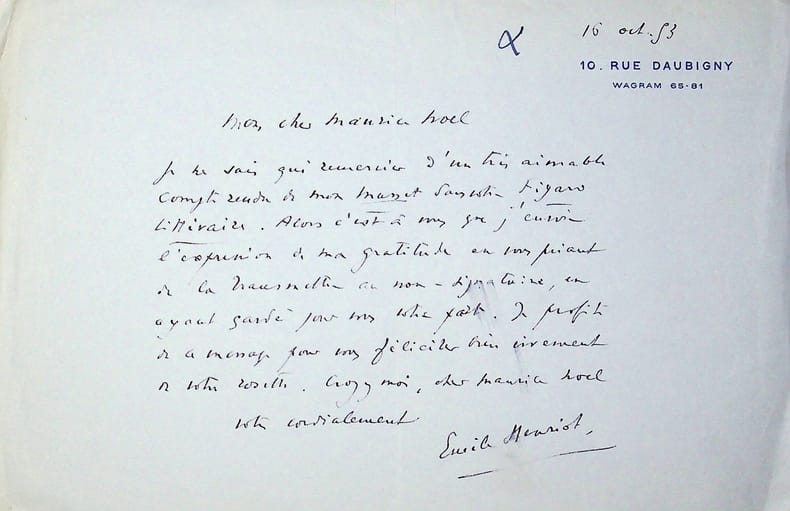 16 oct. 53
10. RUE DAUBIGNY
WAGRAM 65-81
Mon cher Maurice Noel
Je ne sais qui remercier d'un très aimable
compte rendu de mon Musset dans votre Figaro
Littéraire. Alors c'est à vous que j'envoie
l'expression de ma gratitude en vous priant
de la transmettre au non-signataire, en
ayant gardé pour vous votre part. Je profite
de ce message pour vous féliciter bien vivement
de votre rosette. Croyez moi, cher Maurice Noel
votre cordialement
Emile Henriot.